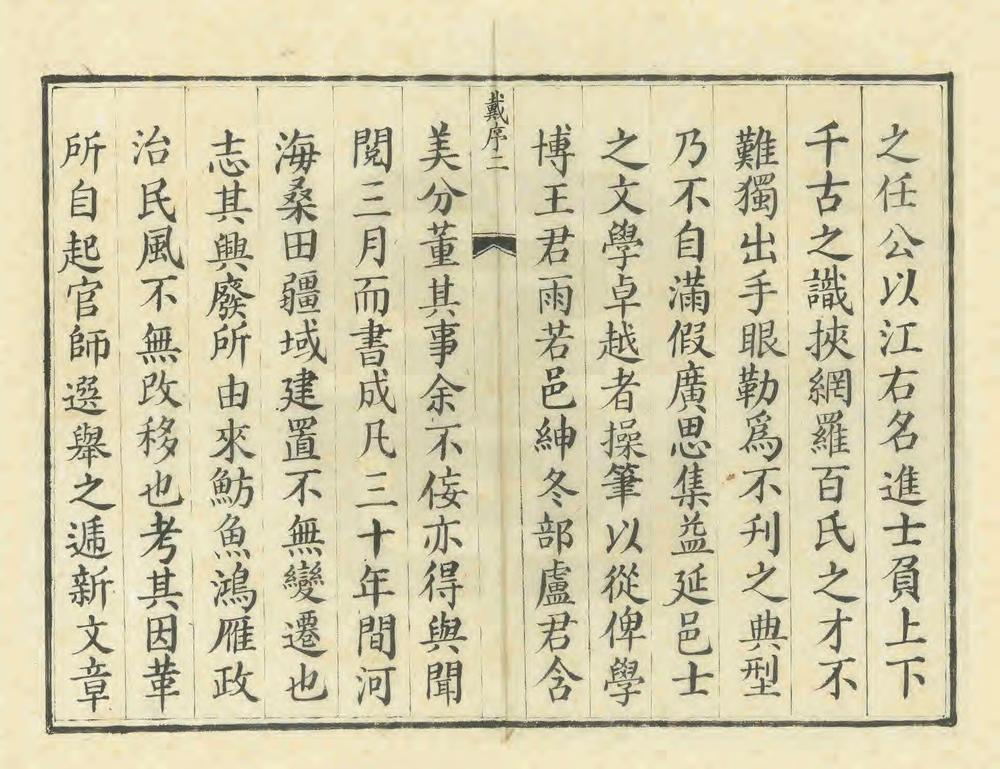 之任公以江右名進士負上下
千古之識挾網羅百氏之才不
難獨出手眼勒爲不刋之典型
乃不自滿假廣思集益延邑士
之文學卓越者操筆以從俾學
博王君雨若邑紳冬部盧君含
戴序二
美分董其事余不佞亦得與聞
閱三月而書成凡三十年間河
海桑田疆域建置不無變遷也
志其興廢所由來魴魚鴻雁政
治民風不無改移也考其因革
所自起官師選舉之遞新文章